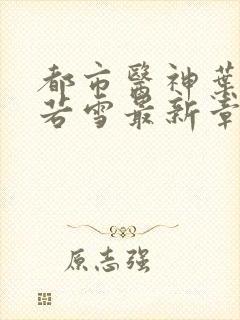 都市醫神葉
若雪最新章
原志强